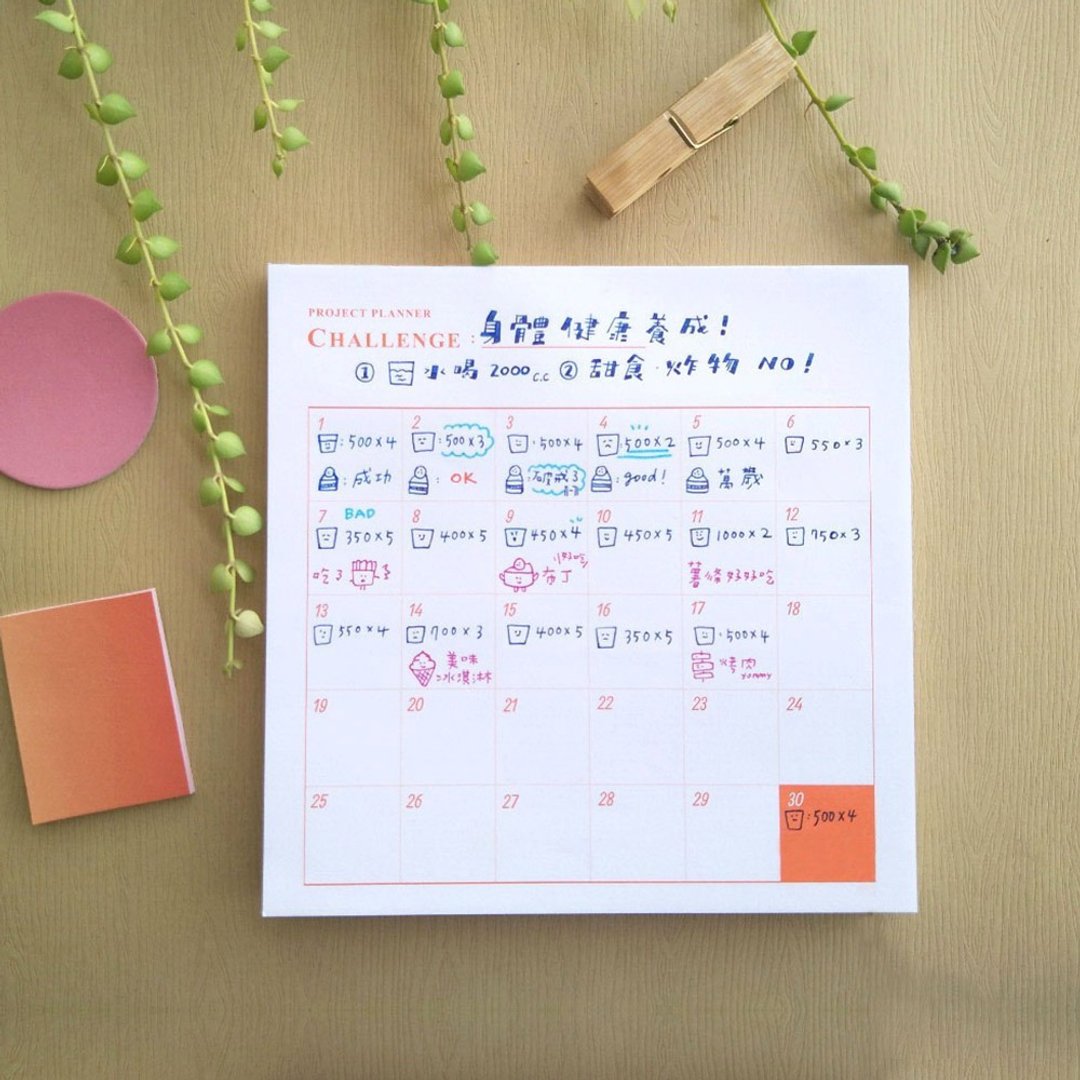 PROJECT PLANNER
CHALLENGE : 身體健康養成！
① 水喝 2000 c.c ② 甜食·炸物 NO！
1 2 3 4 5 6
:500×4 :500×3 :500×4 :500×2 500×4 550×3
:成功 : OK :破戒了 :good! 萬歲
7 BAD 8 9 10 11 12
350×5 400×5 450×4 450×5 1000×2 750×3
吃了 布丁 好吃 薯條好好吃
13 14 15 16 17 18
550×4 700×3 400×5 350×5 :500×4
美味 烤肉
冰淇淋 yummy
19 20 21 22 23 24
25 26 27 28 29 30
:500×4